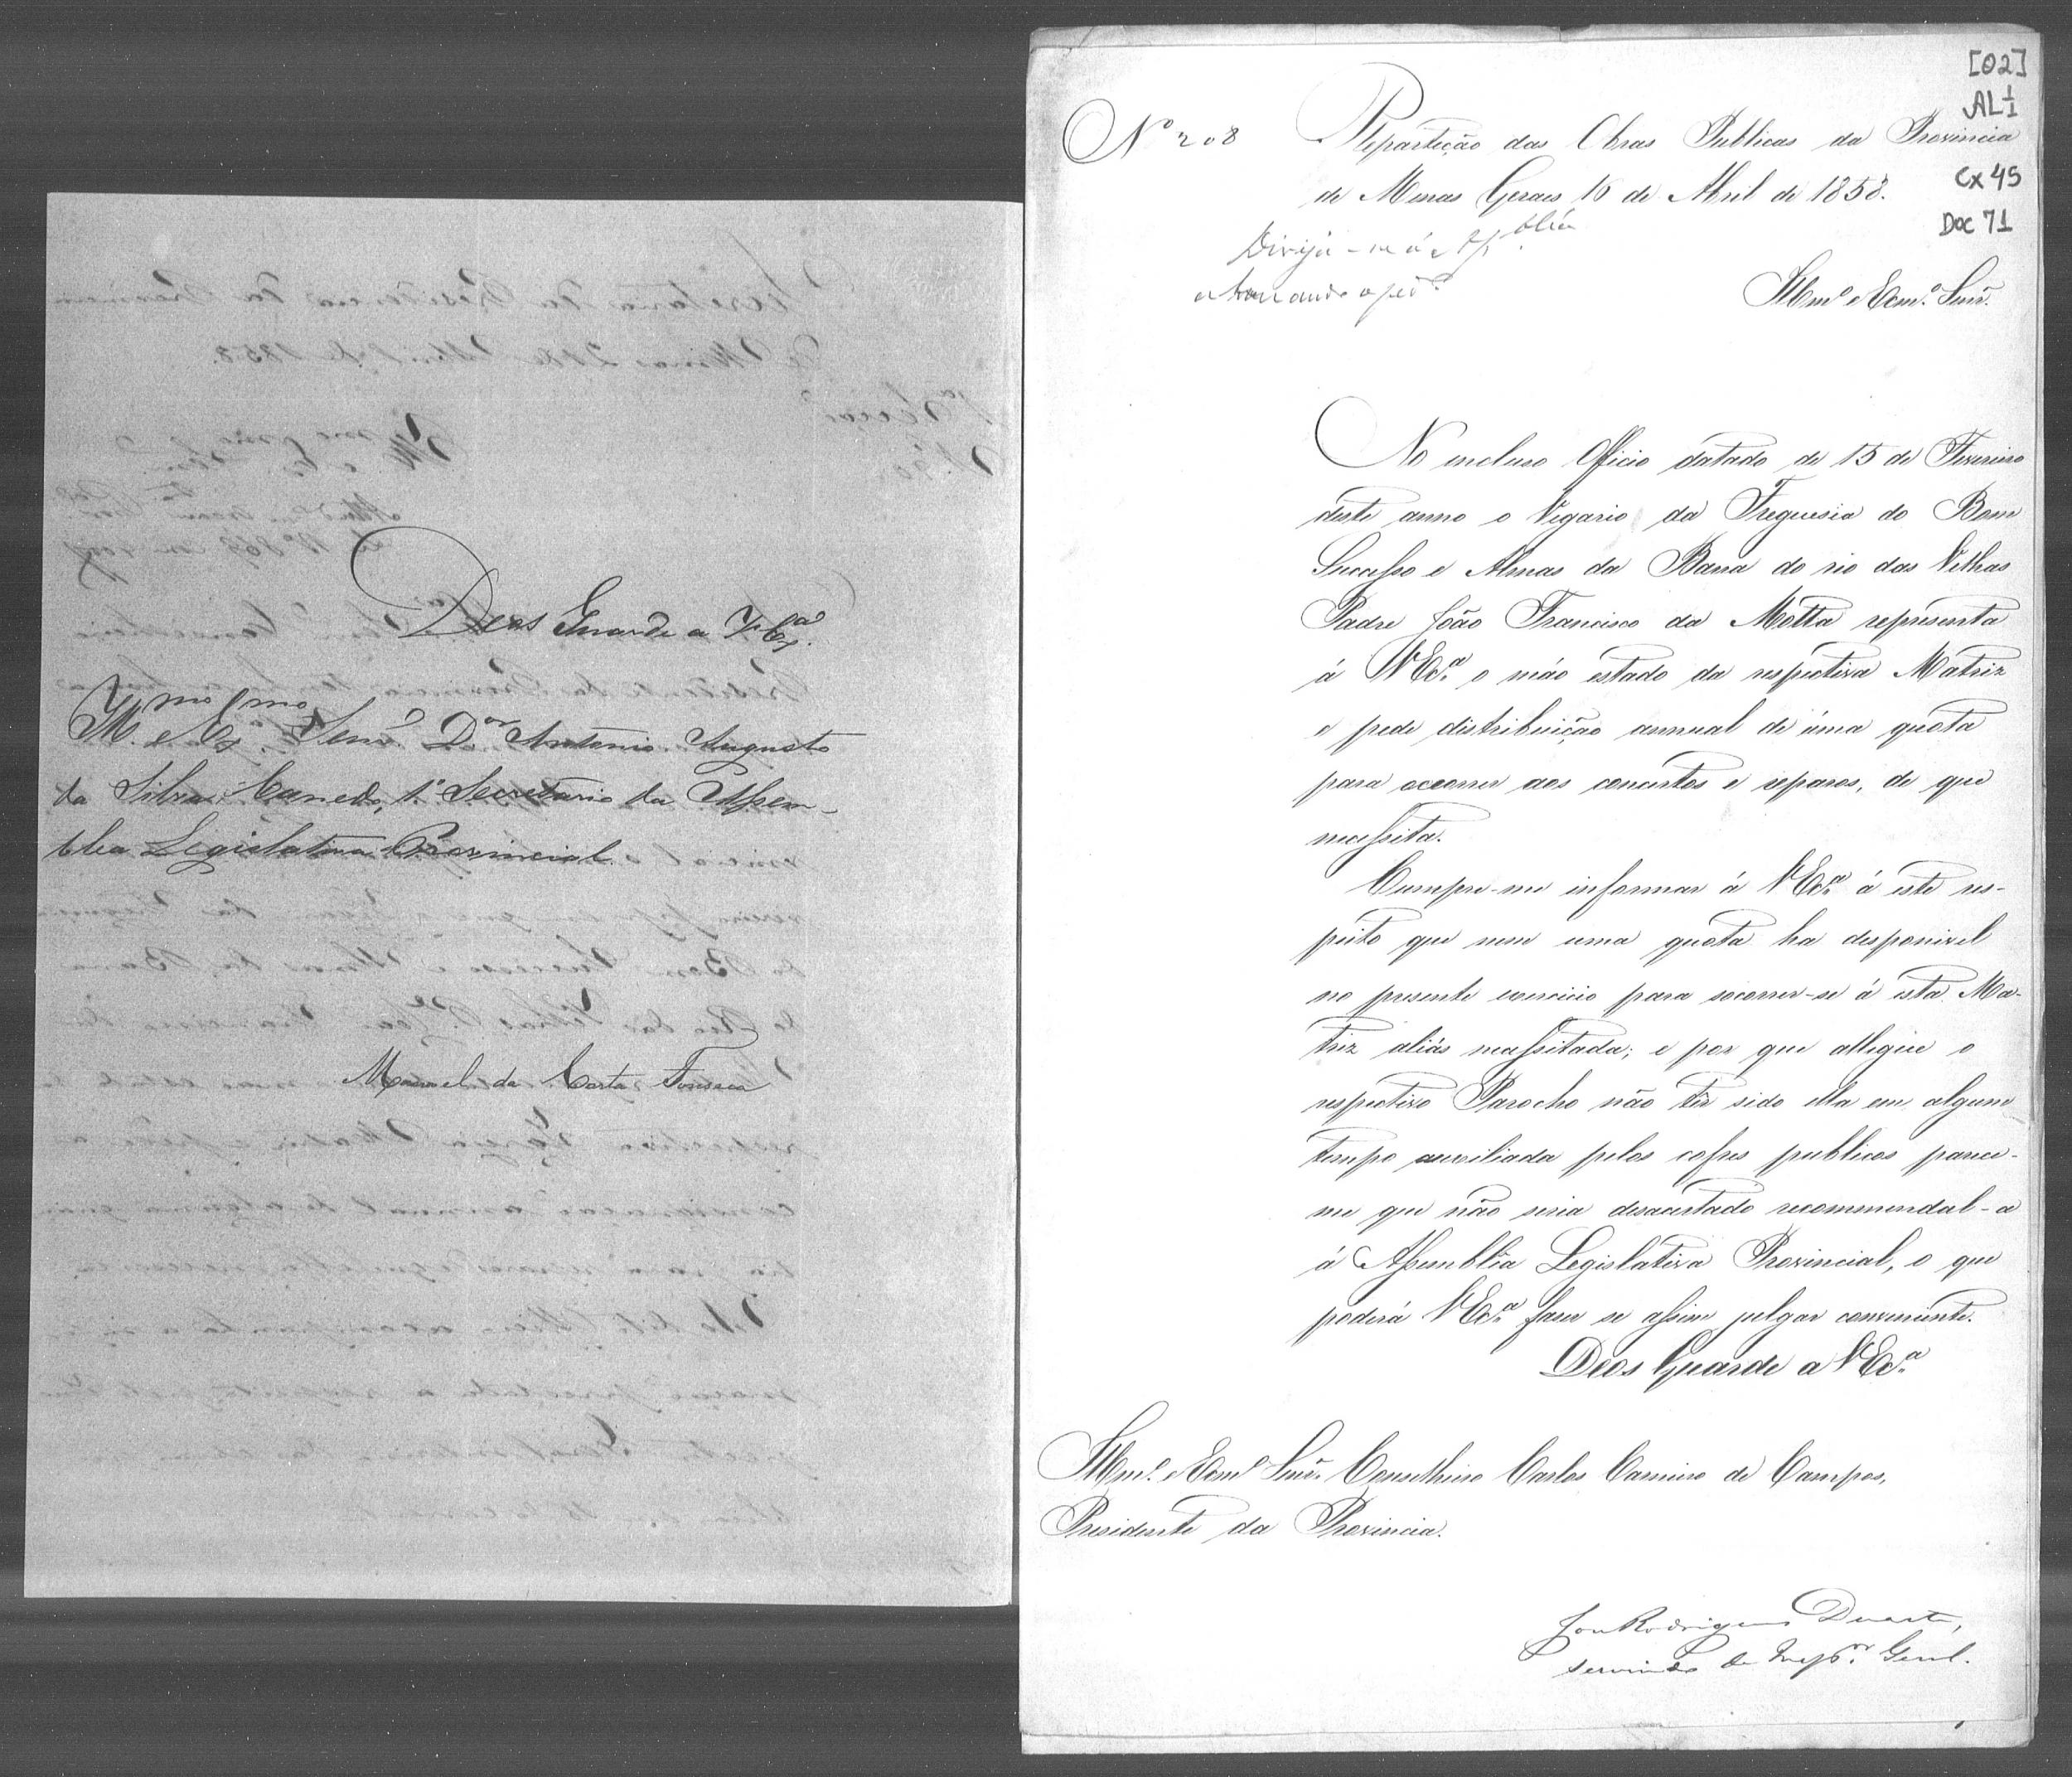 Deos Guarde a V. Ex.ª
Ill.mo e Ex.mo Senr. D.or Antonio Augusto
da Silva Canedo, 1.º Secretario da Assem-
blea Legislativa Provincial.
Manoel da Costa Fonseca
[02]
AL 1/1
Cx 45
Doc 71
Nº 208 Repartição das Obras Publicas da Provincia
de Minas Geraes 16 de Abril de 1858.
Dirija-se á Ass.bléa
Illm.º e Exm.º Snr.
No incluso Officio datado de 15 de Fevereiro
deste anno o Vigario da Freguesia do Bom
Successo e Almas da Barra do rio das Velhas
Padre João Francisco da Motta representa
á V Ex.ª o máo estado da respectiva Matriz
e pede distribuição annual de uma quota
para occorrer aos concertos e reparos, de que
necessita.
Cumpre-me informar á V Ex.ª á este res-
peito que nem uma quota ha desponivel
no presente exercicio para socorrer-se á esta Ma-
triz aliás necessitada; e por que allegue o
respectivo Parocho não ter sido ella em algum
tempo auxiliada pelos cofres publicos parece-
me que não seria desacertado recommendal-a
á Assembléa Legislativa Provincial, o que
poderá V Ex.ª fazer se assim julgar conveniente.
Deos Guarde a V Ex.ª
Illm.º e Exm.º Snr. Conselheiro Carlos Carneiro de Campos,
Presidente da Provincia.
José Rodrigues Duarte,
servindo de Insp.or Geral.